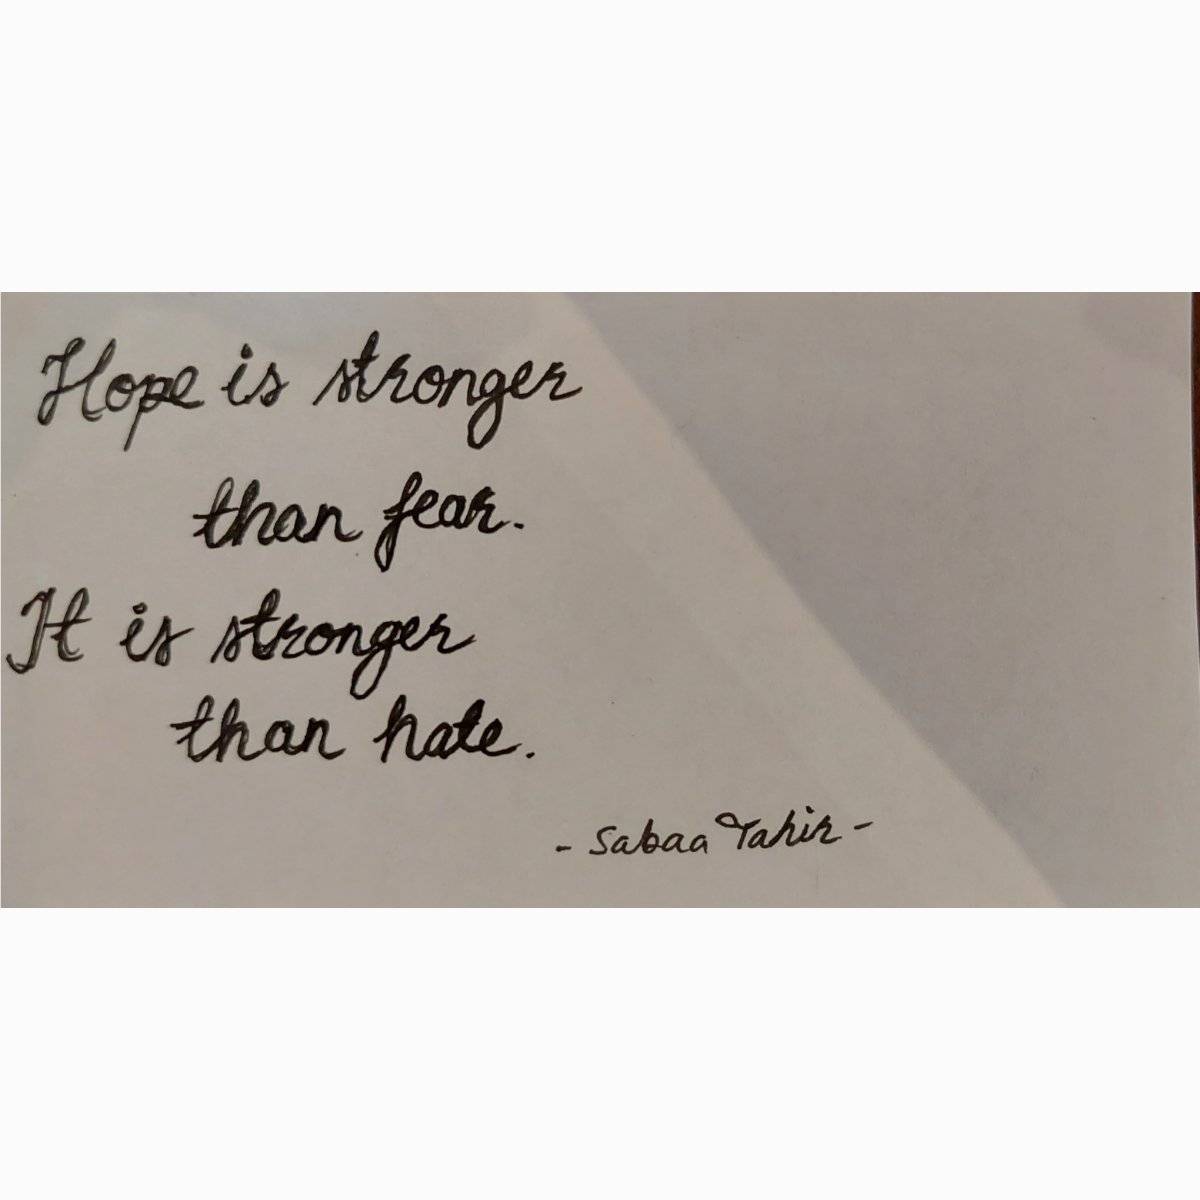 Hope is stronger
than fear.
It is stronger
than hate.
- Sabaa Tahir -